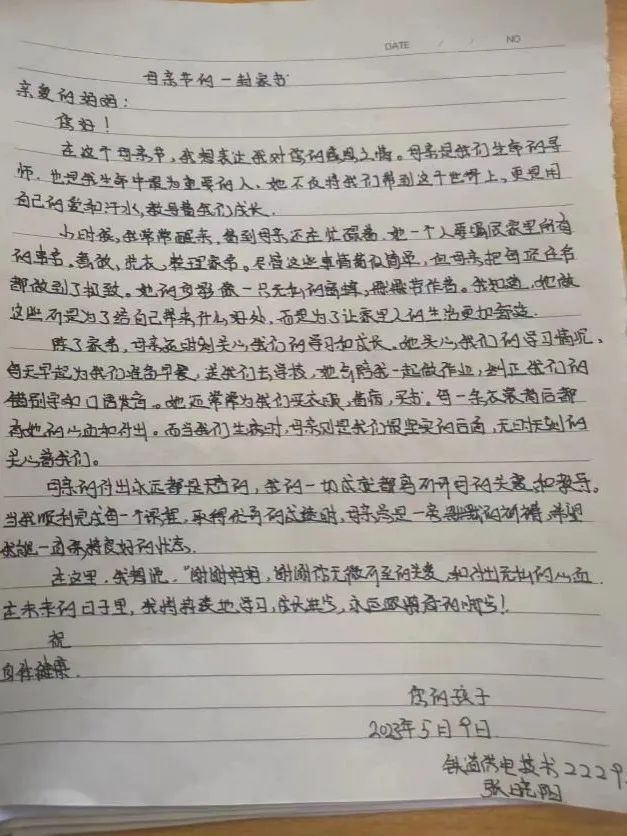 DATE / / NO
母亲节的一封家书
亲爱的妈妈：
您好！
在这个母亲节，我想表达我对您的感恩之情。母亲是我们生命的导
师，也是我生命中最为重要的人，她不仅将我们带到这个世界上，更是用
自己的爱和汗水，教导着我们成长．
小时候，我常常醒来，看到母亲还在忙碌着，她一个人要操持家里所有
的事务，做饭，洗衣，整理家务。尽管这些事情看似简单，但母亲把每项任务
都做到了极致。她的身影像一只无私的蜜蜂，默默劳作着。我知道，她做
这些不是为了给自己带来什么好处，而是为了让家里人的生活更加舒适．
除了家务，母亲还时刻关心我们的学习和成长。她关心我们的学习情况，
每天早起为我们准备早餐，送我们去学校，她与陪我一起做作业，纠正我们的
错别字和口语发音。她还常常为我们买衣服，看病，买书。每一条衣裳背后都
有她的心血和付出。而当我们生病时，母亲则是我们最坚实的后盾，无时无刻的
关心着我们。
母亲的付出永远都是无价的，我的一切成就都离不开母的关爱和教导。
当我顺利完成每一个课程，取得优秀的成绩时，母亲总是一旁默默的祈祷，希望
我能一直保持良好的状态．
在这里，我想说，“谢谢妈妈，谢谢你无微不至的关爱和付出无私的心血
在未来的日子里，我将持续地学习，成长进步，永远跟随着的脚步！
祝
身体健康．
您的孩子
2023年5月9日
铁道供电技术2229
张晓阳